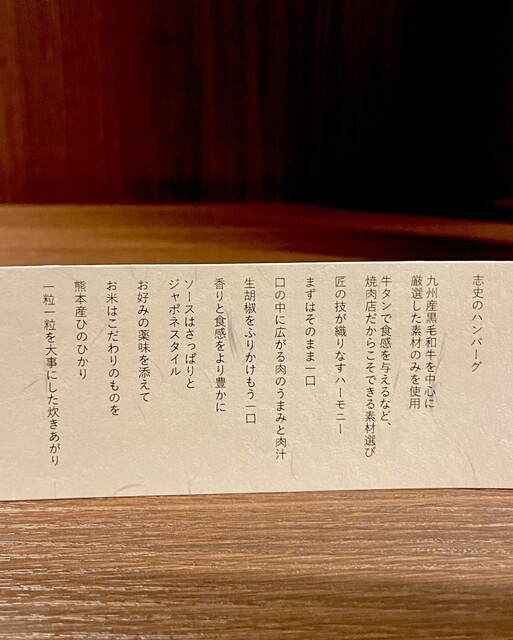 志史のハンバーグ
九州産黒毛和牛を中心に
厳選した素材のみを使用
牛タンで食感を与えるなど、
焼肉店だからこそできる素材選び
匠の技が織りなすハーモニー
まずはそのまま一口
口の中に広がる肉のうまみと肉汁
生胡椒をふりかけもう一口
香りと食感をより豊かに
ソースはさっぱりと
ジャポネスタイル
お好みの薬味を添えて
お米はこだわりのものを
熊本産ひのひかり
一粒一粒を大事にした炊きあがり